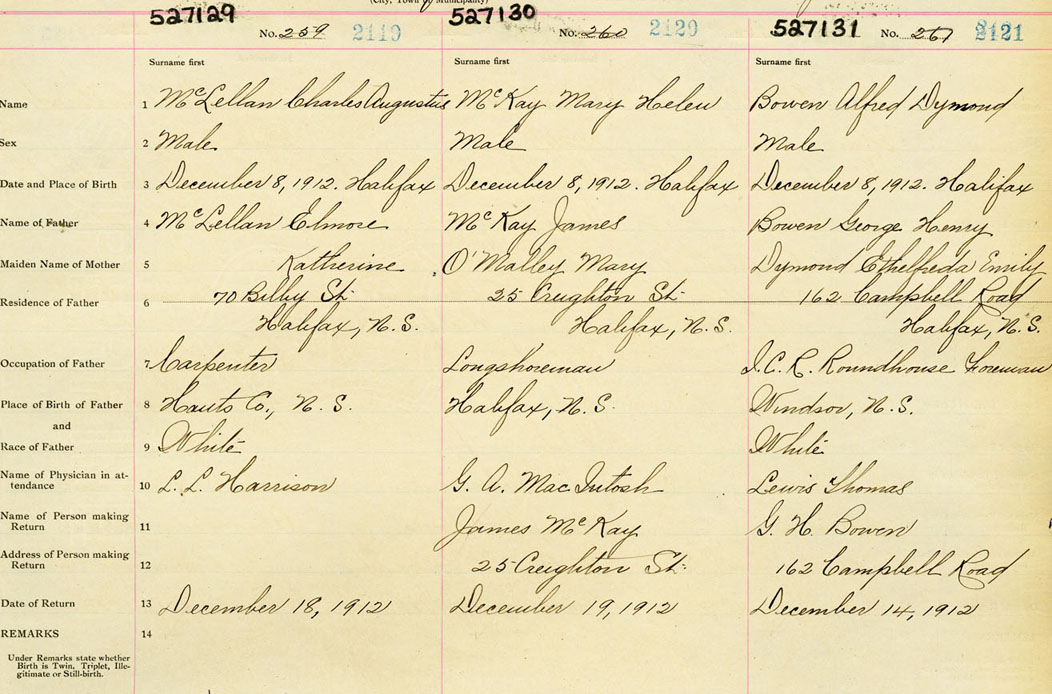 (City, Town or Municipality)
527129 527130 527131
No. 259 2119 No. 260 2120 No. 261 2121
Surname first Surname first Surname first
Name 1 McLellan Charles Augustus McKay Mary Helen Bowen Alfred Dymond
Sex 2 Male Male Male
Date and Place of Birth 3 December 8, 1912. Halifax December 8, 1912. Halifax December 8, 1912. Halifax
Name of Father 4 McLellan Elmore McKay James Bowen George Henry
Maiden Name of Mother 5 Katherine O'Malley Mary Dymond Ethelfreda Emily
Residence of Father 6 70 Bilby St. 25 Creighton St. 162 Campbell Road
Halifax, N.S. Halifax, N.S. Halifax, N.S.
Occupation of Father 7 Carpenter Longshoreman I.C.R. Roundhouse Foreman
Place of Birth of Father 8 Hants Co., N.S. Halifax, N.S. Windsor, N.S.
and
Race of Father 9 White White
Name of Physician in at-
tendance 10 L. L. Harrison G. A. MacIntosh Lewis Thomas
Name of Person making
Return 11 James McKay G. H. Bowen
Address of Person making
Return 12 25 Creighton St. 162 Campbell Road
Date of Return 13 December 18, 1912 December 19, 1912 December 14, 1912
REMARKS 14
Under Remarks state whether
Birth is Twin, Triplet, Ille-
gitimate or Still-birth.